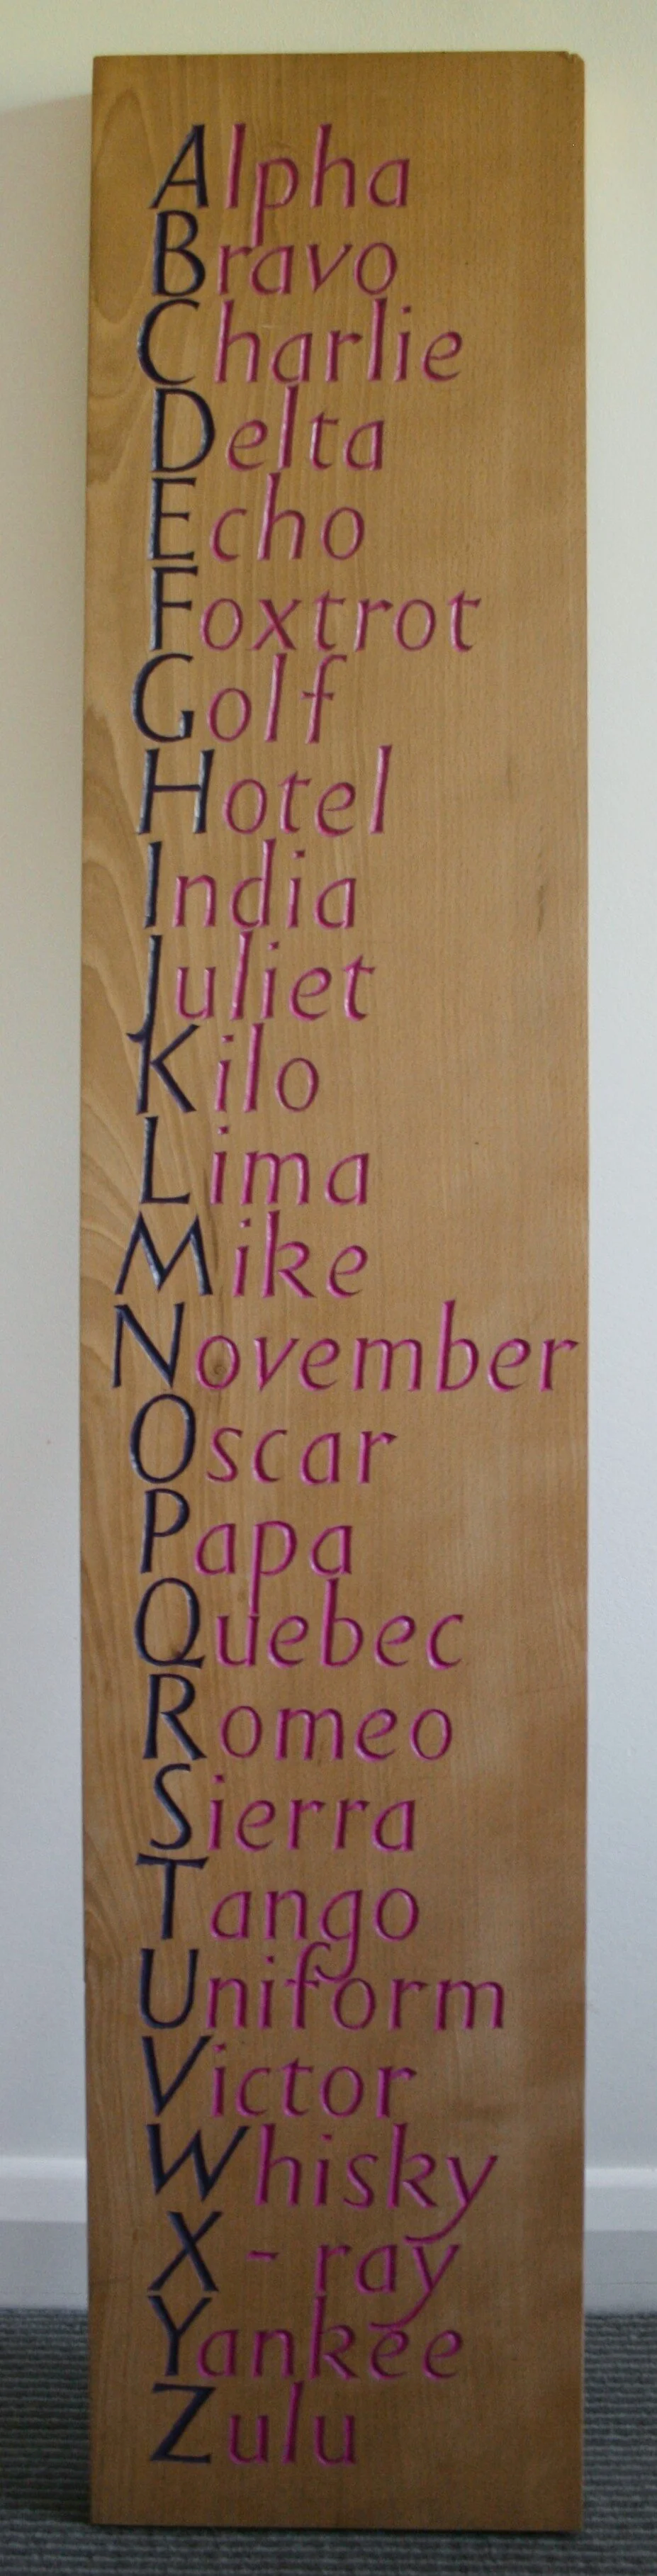 Alpha
Bravo
Charlie
Delta
Echo
Foxtrot
Golf
Hotel
India
Juliet
Kilo
Lima
Mike
November
Oscar
Papa
Quebec
Romeo
Sierra
Tango
Uniform
Victor
Whisky
X-ray
Yankee
Zulu